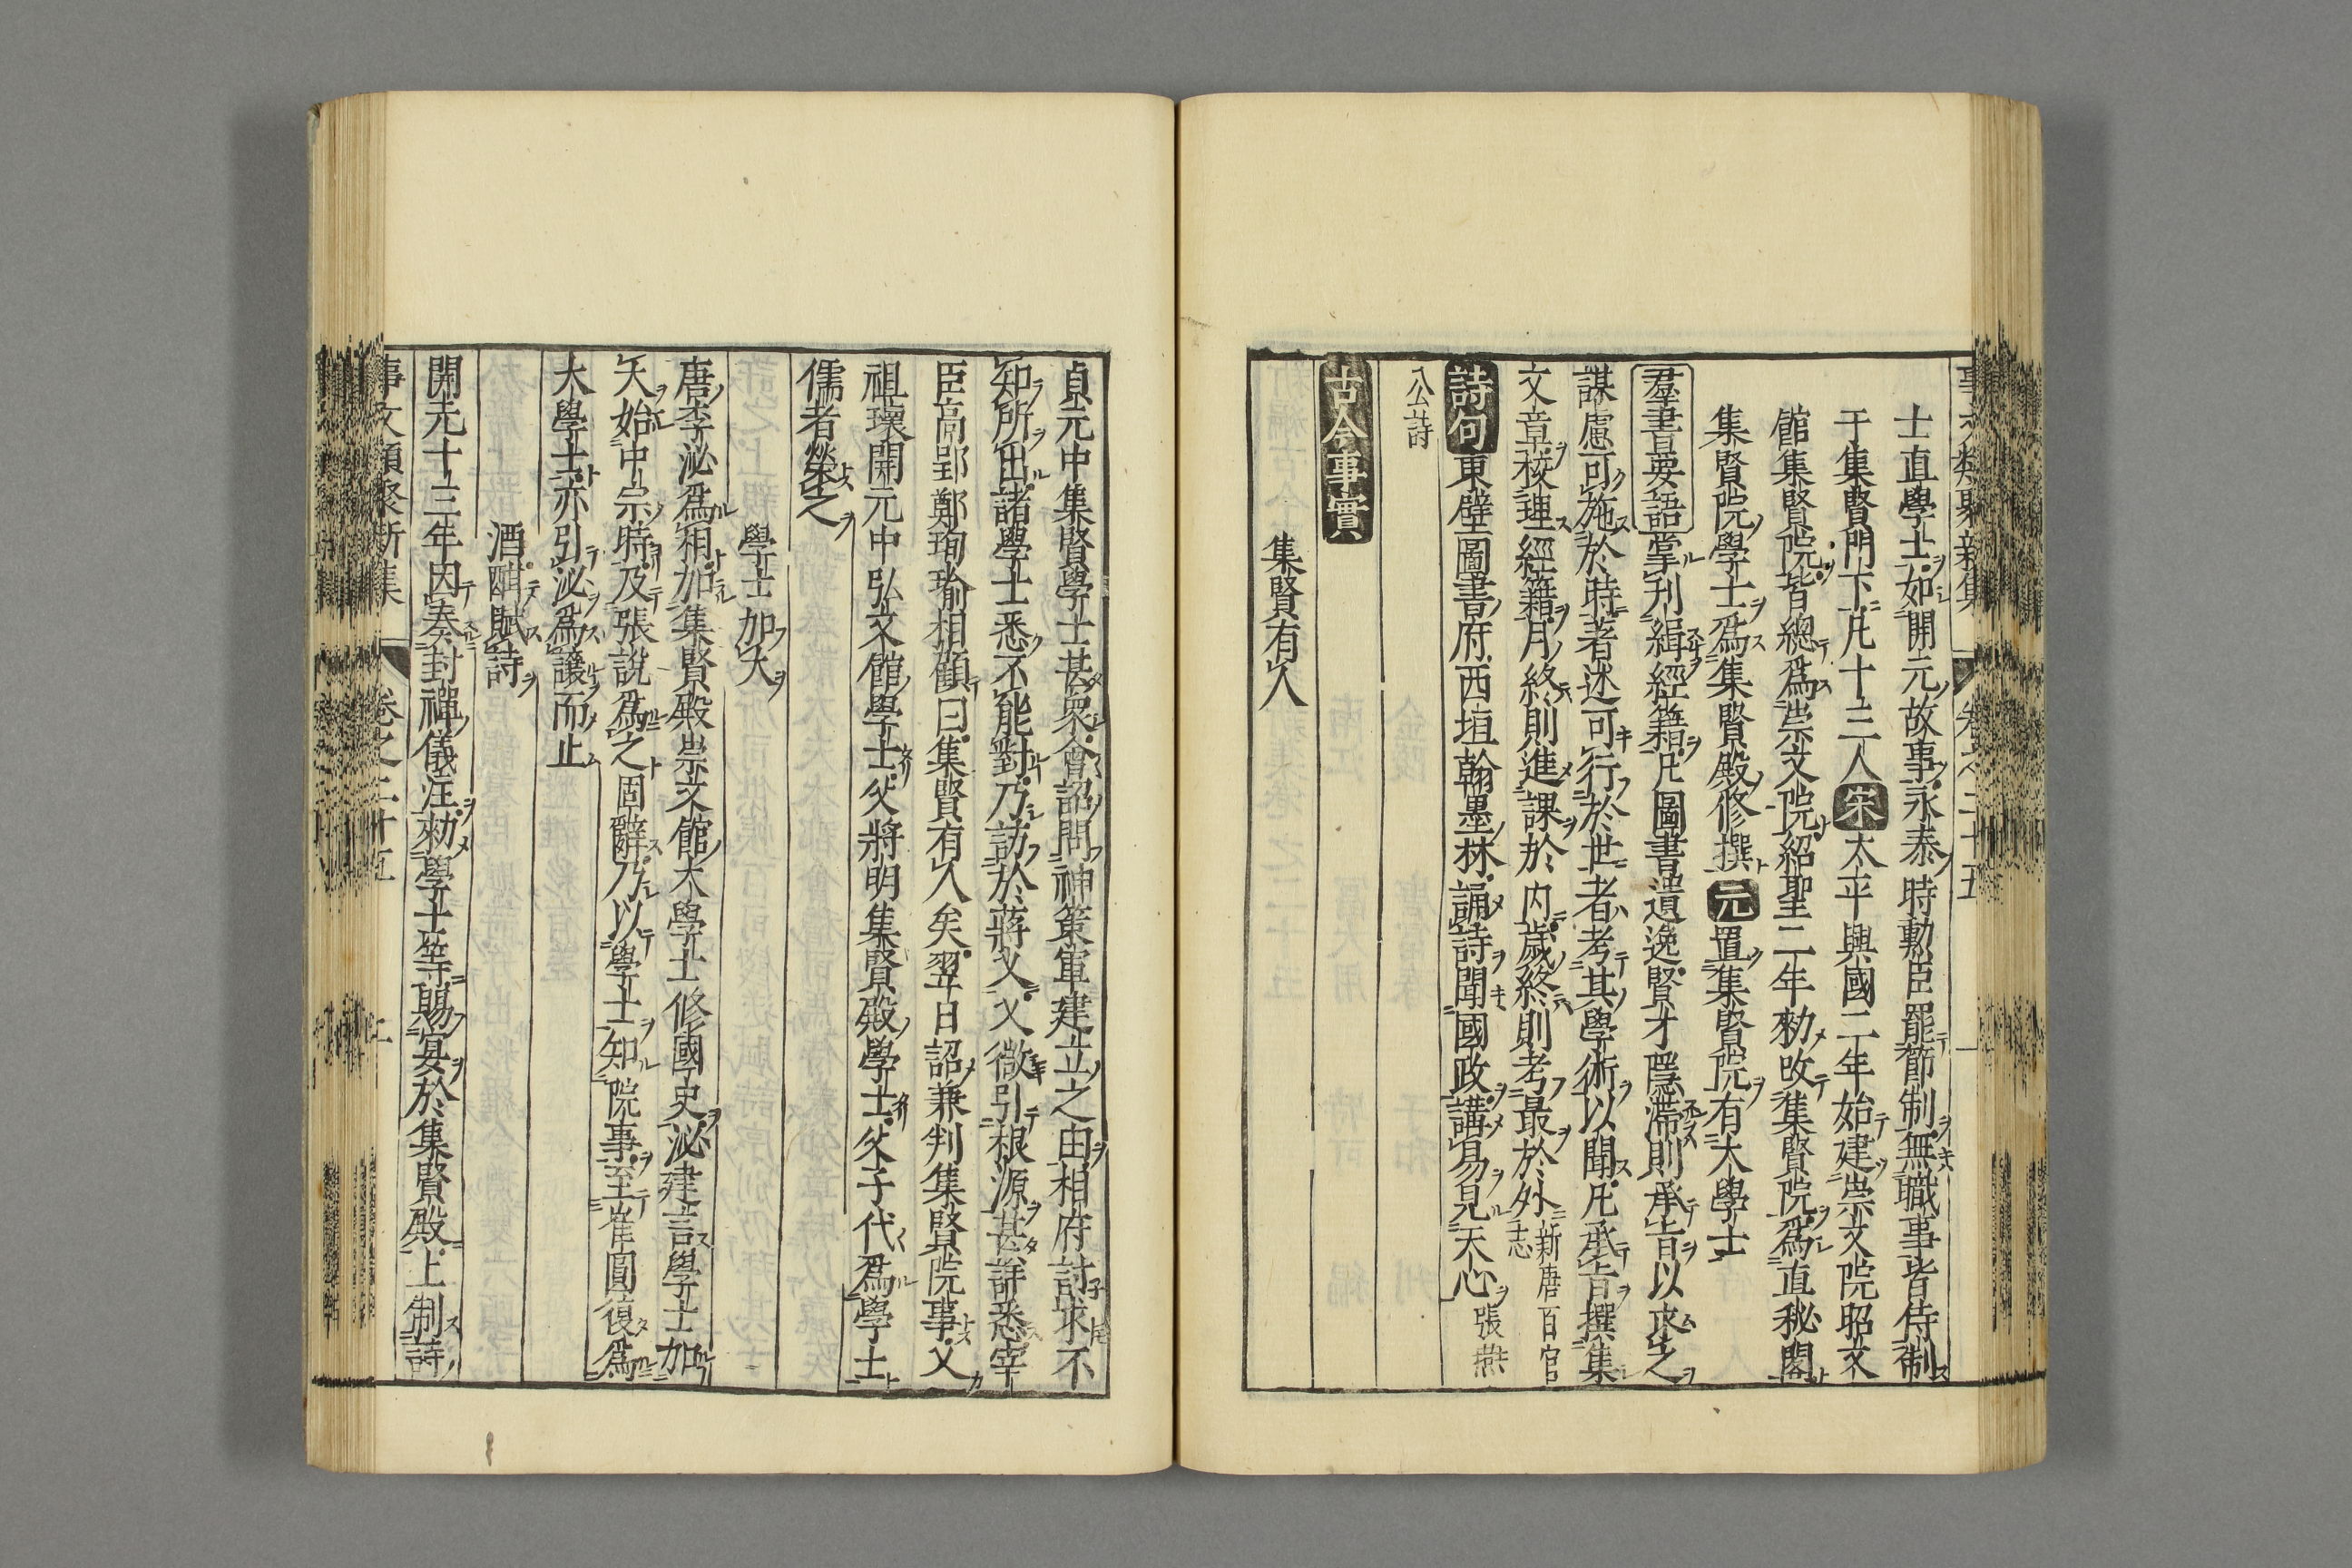 士直學士如開元故事永泰時勳臣罷節制無職事皆侍制
于集賢門下凡十三人宋太平興國二年始建崇文院昭文
館集賢院皆總爲崇文院紹聖二年勑改集賢院爲直秘閣
集賢院學士爲集賢殿修撰元置集賢院有大學士
羣書要語掌刋緝經籍凡圖書遺逸賢才隱滯則承旨以求之
謀慮可施於時著述可行於世者考其學術以聞凡承旨撰集
文章校理經籍月終則進課於内歲終則考最於外新唐百官志
詩句東壁圖書府西垣翰墨林誦詩聞國政講易見天心張燕
公詩
古今事實
集賢有人
貞元中集賢學士甚衆會詔問神策軍建立之由相府討求不
知所出諸學士悉不能對乃訪於蔣乂乂徵引根源甚詳悉宰
臣高郢鄭珣瑜相顧曰集賢有人矣翌日詔兼判集賢院事父
祖瓌開元中弘文館學士父將明集賢殿學士父子代爲學士
儒者榮之
學士加大
唐李泌爲相加集賢殿崇文館大學士修國史泌建言學士加
大始中宗時及張說爲之固辭乃以學士知院事至崔圓復爲
大學士亦引泌爲讓而止
酒酣賦詩
開元十三年因奏封禪儀注勑學士等賜宴於集賢殿上制詩
事文類聚新集 卷之二十五